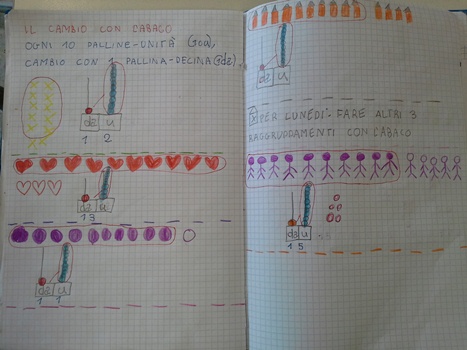 IL CAMBIO CON L'ABACO
OGNI 10 PALLINE-UNITÀ (10u),
CAMBIO CON 1 PALLINA-DECINA (1da)
da u
1 2
da u
1 3
da u
1 1
da u
PER LUNEDÌ: FARE ALTRI 3
RAGGRUPPAMENTI CON L'ABACO
da u
1 5